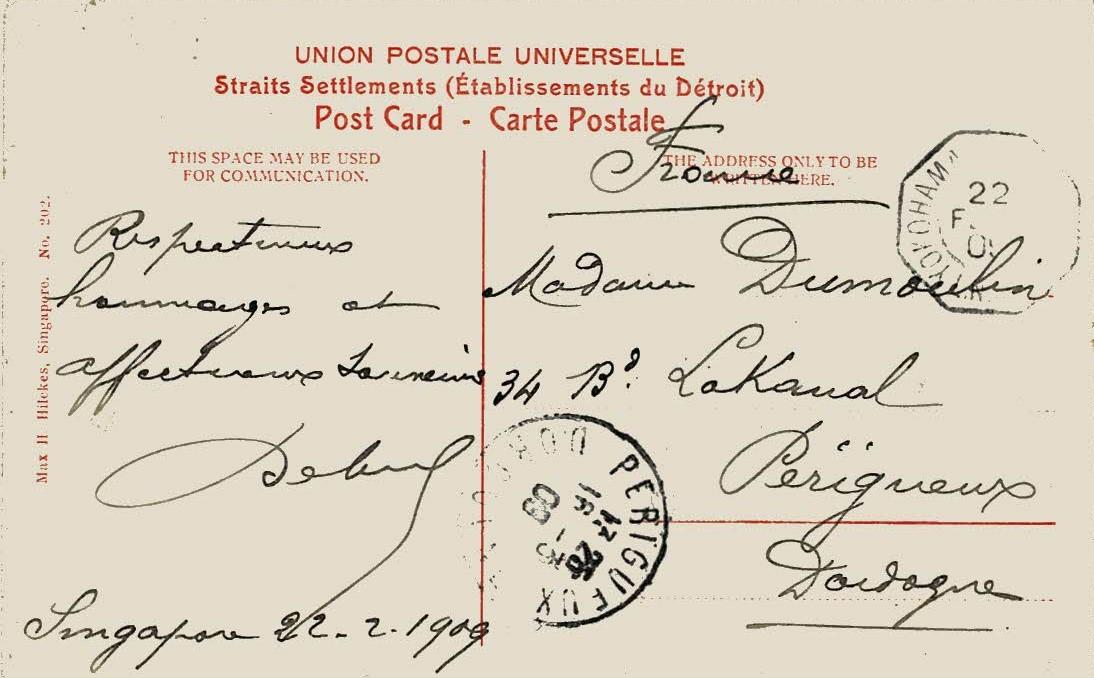 UNION POSTALE UNIVERSELLE
Straits Settlements (Établissements du Détroit)
Post Card - Carte Postale
THIS SPACE MAY BE USED
FOR COMMUNICATION.
THE ADDRESS ONLY TO BE
WRITTEN HERE.
Max H Hilckes, Singapore. No. 202.
Respectueux
hommages et
affectueux souvenirs
Singapore 22-2-1909
France
Madame Dumoulin
34 Bd. Lakanal
Périgueux
Dordogne
YOKOHAMA
22
PERIGUEUX